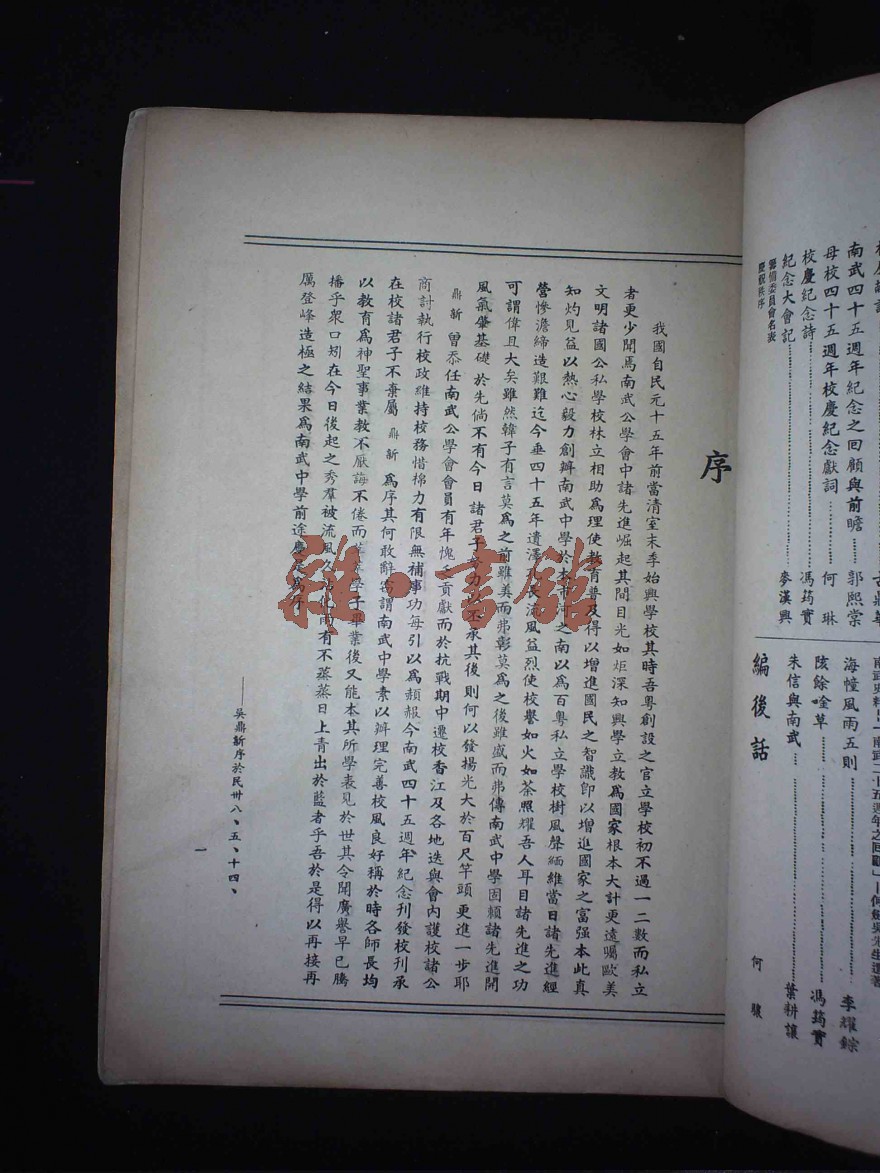 序
我國自民元十五年前當清室末季始興學校其時吾粵創設之官立學校初不過一二數而私立
者更少聞焉南武公學會中諸先進崛起其間目光如炬深知興學立教爲國家根本大計更遠矚歐美
文明諸國公私學校林立相助爲理使教育普及得以增進國民之智識卽以增進國家之富强本此真
知灼見益以熱心毅力創辦南武中學於本市河之南以爲百粵私立學校樹風聲緬維當日諸先進經
營慘澹締造艱難迄今垂四十五年遺澤 長流風益烈使校譽如火如荼照耀吾人耳目諸先進之功
可謂偉且大矣雖然韓子有言莫爲之前雖美而弗彰莫爲之後雖盛而弗傳南武中學固賴諸先進開
風氣肇基礎於先倘不有今日諸君子 力 承其後則何以發揚光大於百尺竿頭更進一步耶
鼎新曾忝任南武公學會會員有年愧 貢獻而於抗戰期中遷校香江及各地迭與會內護校諸公
商討執行校政維持校務惜棉力有限無補事功每引以爲頳赧今南武四十五週年紀念刊發校刊承
在校諸君子不棄屬鼎新爲序其何敢辭竊謂南武中學素以辦理完善校風良好稱於時各師長均
以教育爲神聖事業教不厭誨不倦而 學子畢業後又能本其所學表見於世其令聞廣譽早已騰
播乎衆口矧在今日後起之秀羣被流風久 化 有不蒸蒸日上青出於藍者乎吾於是得以再接再
厲登峰造極之結果爲南武中學前途慶是爲序
——吳鼎新序於民卅八、五、十四、
一
南武四十五週年紀念之回顧與前瞻………郭熙棠
母校四十五週年校慶紀念獻詞………何琳
校慶紀念詩………馮筠實
紀念大會記………麥漢興
籌備委員會名表
慶祝秩序
海幢風雨五則………李耀錝
陔餘唫草………馮筠實
朱信與南武………葉耕讓
編後話 何驤
雜·書館